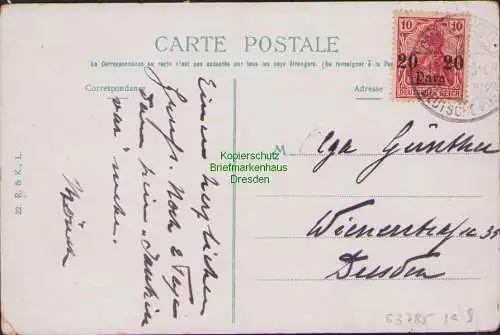 CARTE POSTALE
La Correspondance au recto n'est pas acceptée par tous les pays étrangers. (Se renseigner à la Po
Correspondance
Adresse
10 10
20 20
Para
DEUTSCHES REICH
DEUTSCHE
Einen herzlichen
Gruß. Noch 2 Tage
dann kein
mehr.
M Olga Günther
Wienerstraße 35
Dresden
22 R. & K. I.
Kopierschutz
Briefmarkenhaus
Dresden
63785